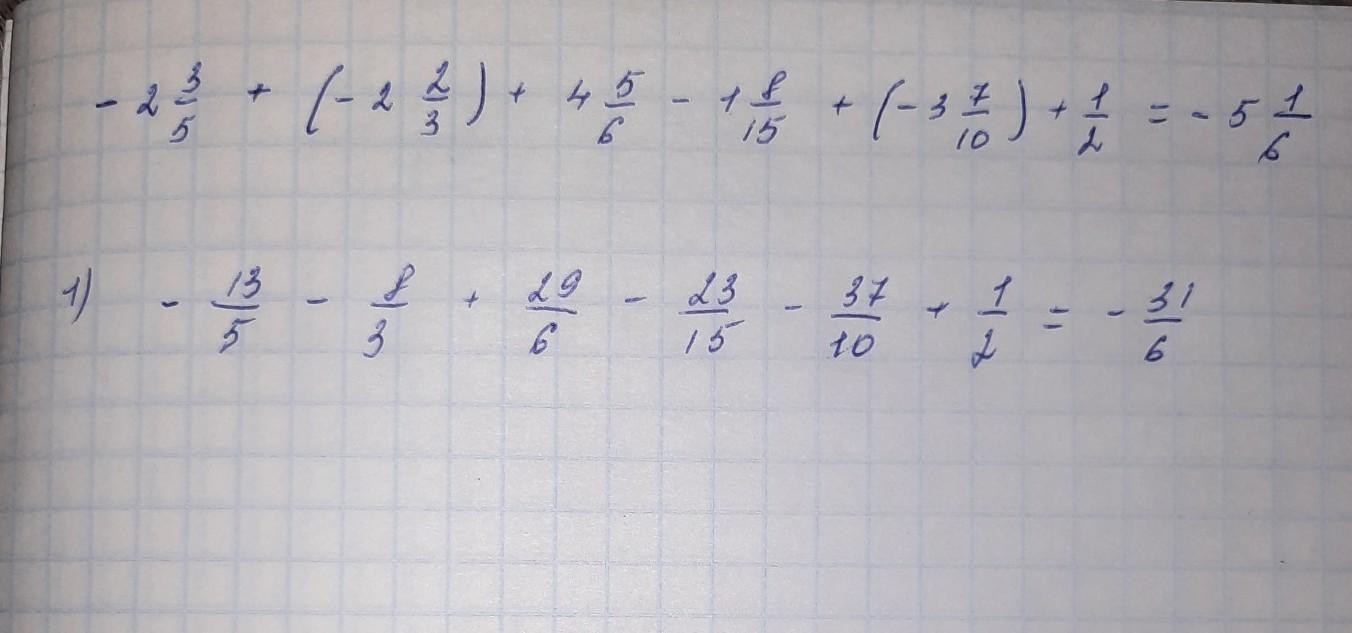 - 2 3/5 + (- 2 2/3) + 4 5/6 - 1 8/15 + (- 3 7/10) + 1/2 = - 5 1/6
1) - 13/5 - 8/3 + 29/6 - 23/15 - 37/10 + 1/2 = - 31/6